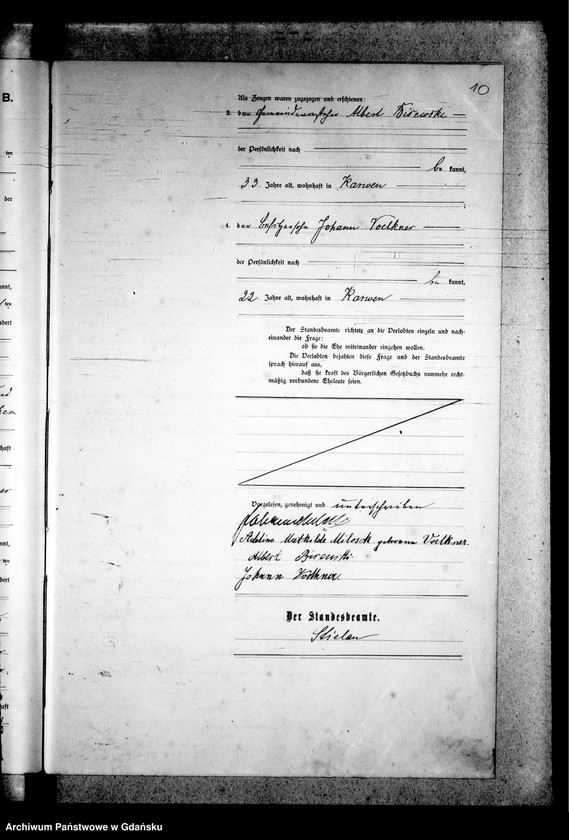 10
B.
Als Zeugen waren zugezogen und erschienen:
3. der Gemeindevorsteher Albert Bisewski
der Persönlichkeit nach
be kannt,
33 Jahre alt, wohnhaft in Karwen
4. der Besitzersohn Johann Voelkner
der Persönlichkeit nach
be kannt,
22 Jahre alt, wohnhaft in Karwen
Der Standesbeamte richtete an die Verlobten einzeln und nach-
einander die Frage:
ob sie die Ehe miteinander eingehen wollen.
Die Verlobten bejahten diese Frage und der Standesbeamte
sprach hierauf aus,
daß sie kraft des Bürgerlichen Gesetzbuchs nunmehr recht-
mäßig verbundene Eheleute seien.
Vorgelesen, genehmigt und unterschrieben
Mathilde Milosch geborene Völkner.
Albert
Johann Völkner.
Der Standesbeamte.
Archiwum Państwowe w Gdańsku